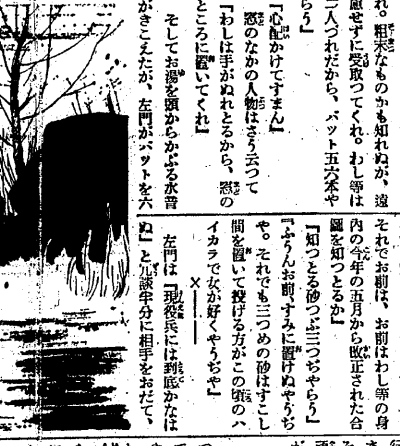 れ。粗末なものかも知れぬが、遠
慮せずに受取つてくれ。わし等は
二人づれだから、バット五六本や
らう』
『心配かけてすまん』
窓のなかの人物はさう云つて
『わしは手がぬれとるから、窓の
ところに置いてくれ』
そしてお湯を頭からかぶる水音
がきこえたが、左門がバットを六
それでお前は、お前はわし等の身
內の今年の五月から改正された合
圖を知つとるか』
『知つとる砂つぶ三つぢやらう』
『ふうんお前、すみに置けぬやうぢ
や。それでも三つめの砂はすこし
間を置いて投げる方がこの頃のハ
イカラで女が好くやうぢや』
×
左門は『現役兵には到底かなは
ぬ』と冗談半分に相手をおだて、